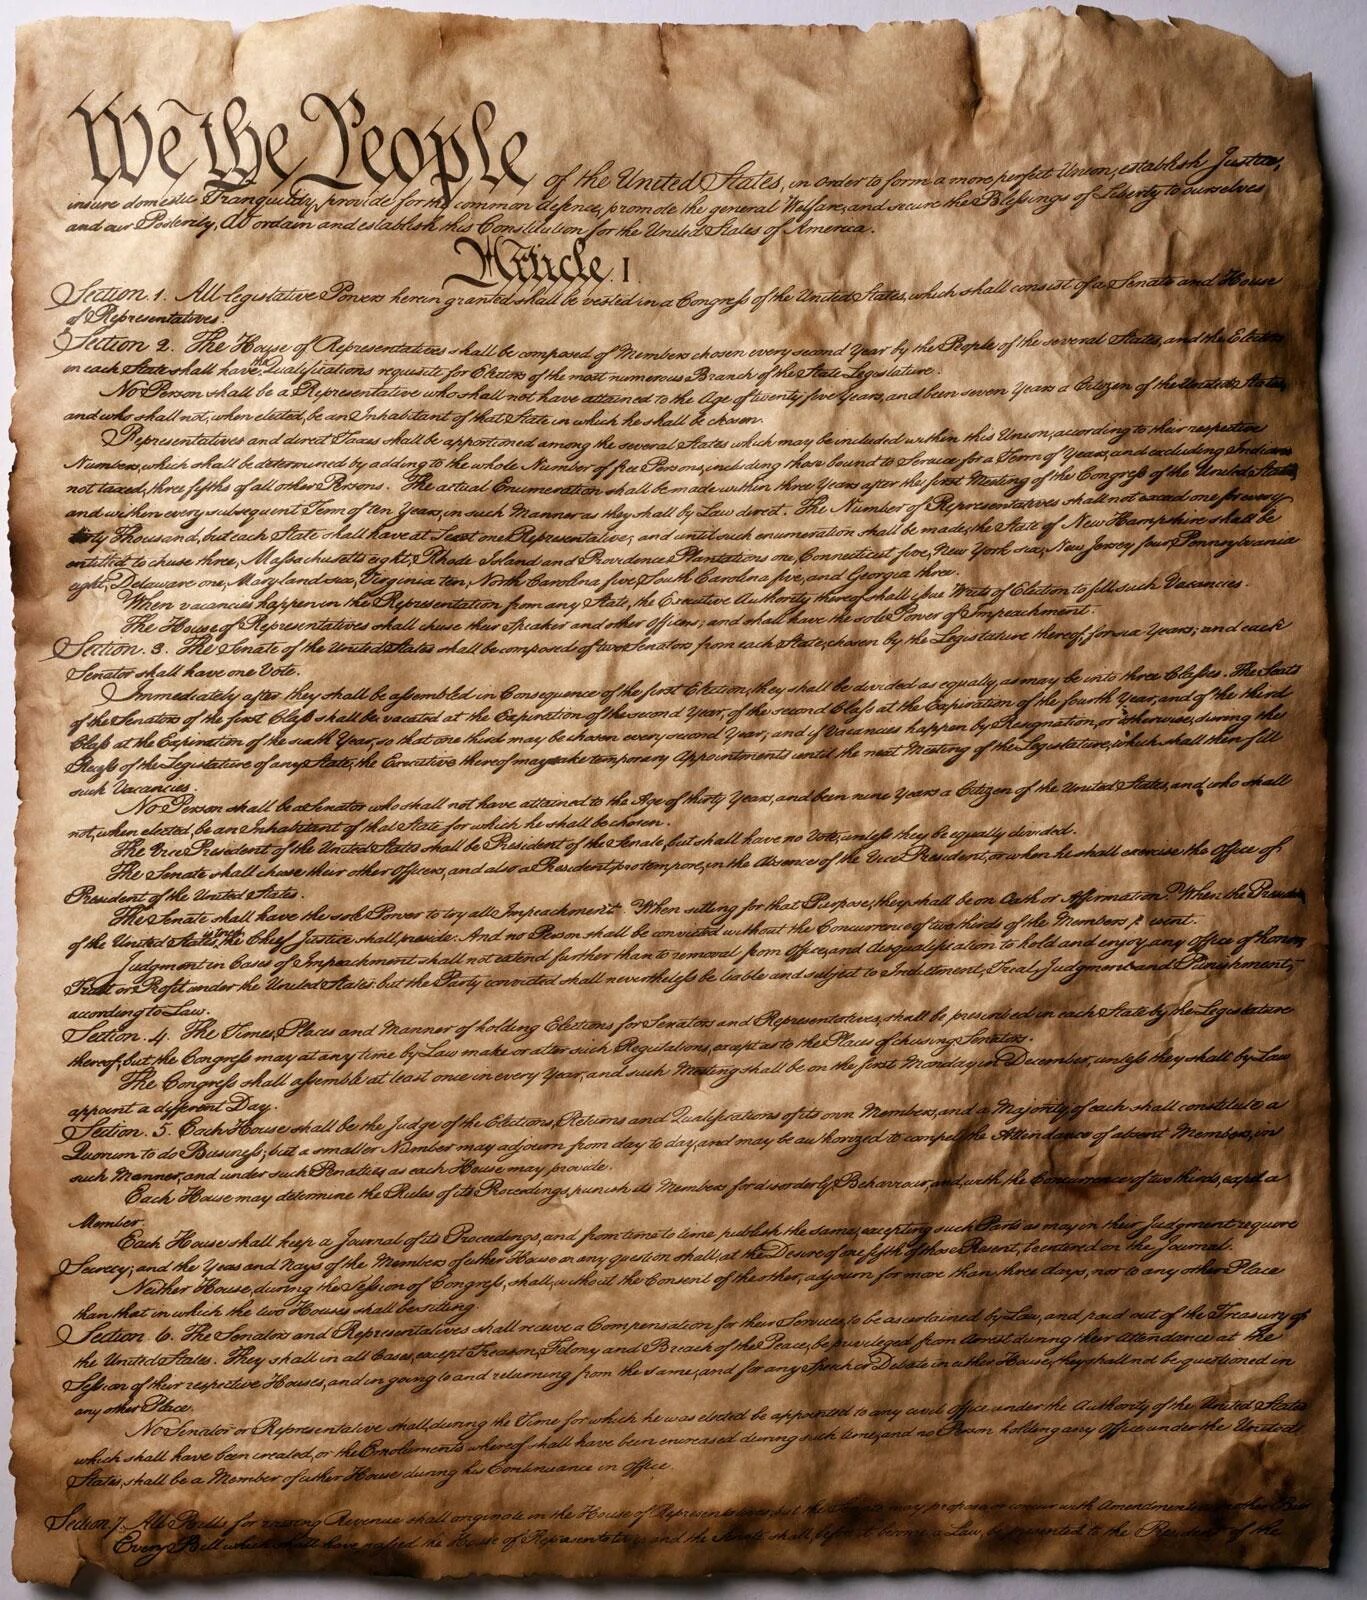 We the People of the United States, in Order to form a more perfect Union, establish Justice,
insure domestic Tranquility, provide for the common defence, promote the general Welfare, and secure the Blessings of Liberty to ourselves
and our Posterity, do ordain and establish this Constitution for the United States of America.
Article. I
Section. 1. All legislative Powers herein granted shall be vested in a Congress of the United States, which shall consist of a Senate and House
of Representatives.
Section 2. The House of Representatives shall be composed of Members chosen every second Year by the People of the several States, and the Electors
in each State shall have the Qualifications requisite for Electors of the most numerous Branch of the State Legislature.
No Person shall be a Representative who shall not have attained to the Age of twenty five Years, and been seven Years a Citizen of the United States,
and who shall not, when elected, be an Inhabitant of that State in which he shall be chosen.
Representatives and direct Taxes shall be apportioned among the several States which may be included within this Union, according to their respective
Numbers, which shall be determined by adding to the whole Number of free Persons, including those bound to Service for a Term of Years, and excluding Indians
not taxed, three fifths of all other Persons. The actual Enumeration shall be made within three Years after the first Meeting of the Congress of the United States,
and within every subsequent Term of ten Years, in such Manner as they shall by Law direct. The Number of Representatives shall not exceed one for every
Thousand, but each State shall have at Least one Representative; and until such enumeration shall be made, the State of New Hampshire shall be
entitled to chuse three, Massachusetts eight, Rhode Island and Providence Plantations one, Connecticut five, New York six, New Jersey four, Pennsylvania
eight, Delaware one, Maryland six, Virginia ten, North Carolina five, South Carolina five, and Georgia three.
When vacancies happen in the Representation from any State, the Executive Authority thereof shall issue Writs of Election to fill such Vacancies.
The House of Representatives shall chuse their Speaker and other Officers; and shall have the sole Power of Impeachment.
Section. 3. The Senate of the United States shall be composed of two Senators from each State, chosen by the Legislature thereof, for six Years; and each
Senator shall have one Vote.
Immediately after they shall be assembled in Consequence of the first Election, they shall be divided as equally as may be into three Classes. The Seats
of the Senators of the first Class shall be vacated at the Expiration of the second Year, of the second Class at the Expiration of the fourth Year, and of the third
Class at the Expiration of the sixth Year, so that one third may be chosen every second Year; and if Vacancies happen by Resignation, or otherwise, during the
Recess of the Legislature of any State, the Executive thereof may make temporary Appointments until the next Meeting of the Legislature, which shall then fill
such Vacancies.
No Person shall be a Senator who shall not have attained to the Age of thirty Years, and been nine Years a Citizen of the United States, and who shall
not, when elected, be an Inhabitant of that State for which he shall be chosen.
The Vice President of the United States shall be President of the Senate, but shall have no Vote, unless they be equally divided.
The Senate shall chuse their other Officers, and also a President pro tempore, in the Absence of the Vice President, or when he shall exercise the Office of
President of the United States.
The Senate shall have the sole Power to try all Impeachments. When sitting for that Purpose, they shall be on Oath or Affirmation. When the President
of the United States is tried, the Chief Justice shall preside: And no Person shall be convicted without the Concurrence of two thirds of the Members
Judgment in Cases of Impeachment shall not extend further than to removal from Office, and disqualification to hold and enjoy any Office of honor,
Trust or Profit under the United States: but the Party convicted shall nevertheless be liable and subject to Indictment, Trial, Judgment and Punishment,
according to Law.
Section. 4. The Times, Places and Manner of holding Elections for Senators and Representatives, shall be prescribed in each State by the Legislature
thereof; but the Congress may at any time by Law make or alter such Regulations, except as to the Places of chusing Senators.
The Congress shall assemble at least once in every Year, and such Meeting shall be on the first Monday in December, unless they shall by Law
appoint a different Day.
Section. 5. Each House shall be the Judge of the Elections, Returns and Qualifications of its own Members, and a Majority of each shall constitute a
Quorum to do Business; but a smaller Number may adjourn from day to day, and may be authorized to compel the Attendance of absent Members, in
such Manner, and under such Penalties as each House may provide.
Each House may determine the Rules of its Proceedings, punish its Members for disorderly Behaviour, and, with the Concurrence of two thirds, expel a
Member.
Each House shall keep a Journal of its Proceedings, and from time to time publish the same, excepting such Parts as may in their Judgment require
Secrecy; and the Yeas and Nays of the Members of either House on any question shall, at the Desire of one fifth of those Present, be entered on the Journal.
Neither House, during the Session of Congress, shall, without the Consent of the other, adjourn for more than three days, nor to any other Place
than that in which the two Houses shall be sitting.
Section 6. The Senators and Representatives shall receive a Compensation for their Services, to be ascertained by Law, and paid out of the Treasury of
the United States. They shall in all Cases, except Treason, Felony and Breach of the Peace, be privileged from Arrest during their Attendance at the
Session of their respective Houses, and in going to and returning from the same; and for any Speech or Debate in either House, they shall not be questioned in
any other Place.
No Senator or Representative shall, during the Time for which he was elected, be appointed to any civil Office under the Authority of the United States
which shall have been created, or the Emoluments whereof shall have been encreased during such time; and no Person holding any Office under the United
States, shall be a Member of either House during his Continuance in Office.
Section 7. All Bills for raising Revenue shall originate in the House of Representatives; but the Senate may propose or concur with Amendments as on other Bills
Every Bill which shall have passed the House of Representatives and the Senate, shall, before it become a Law, be presented to the President of the